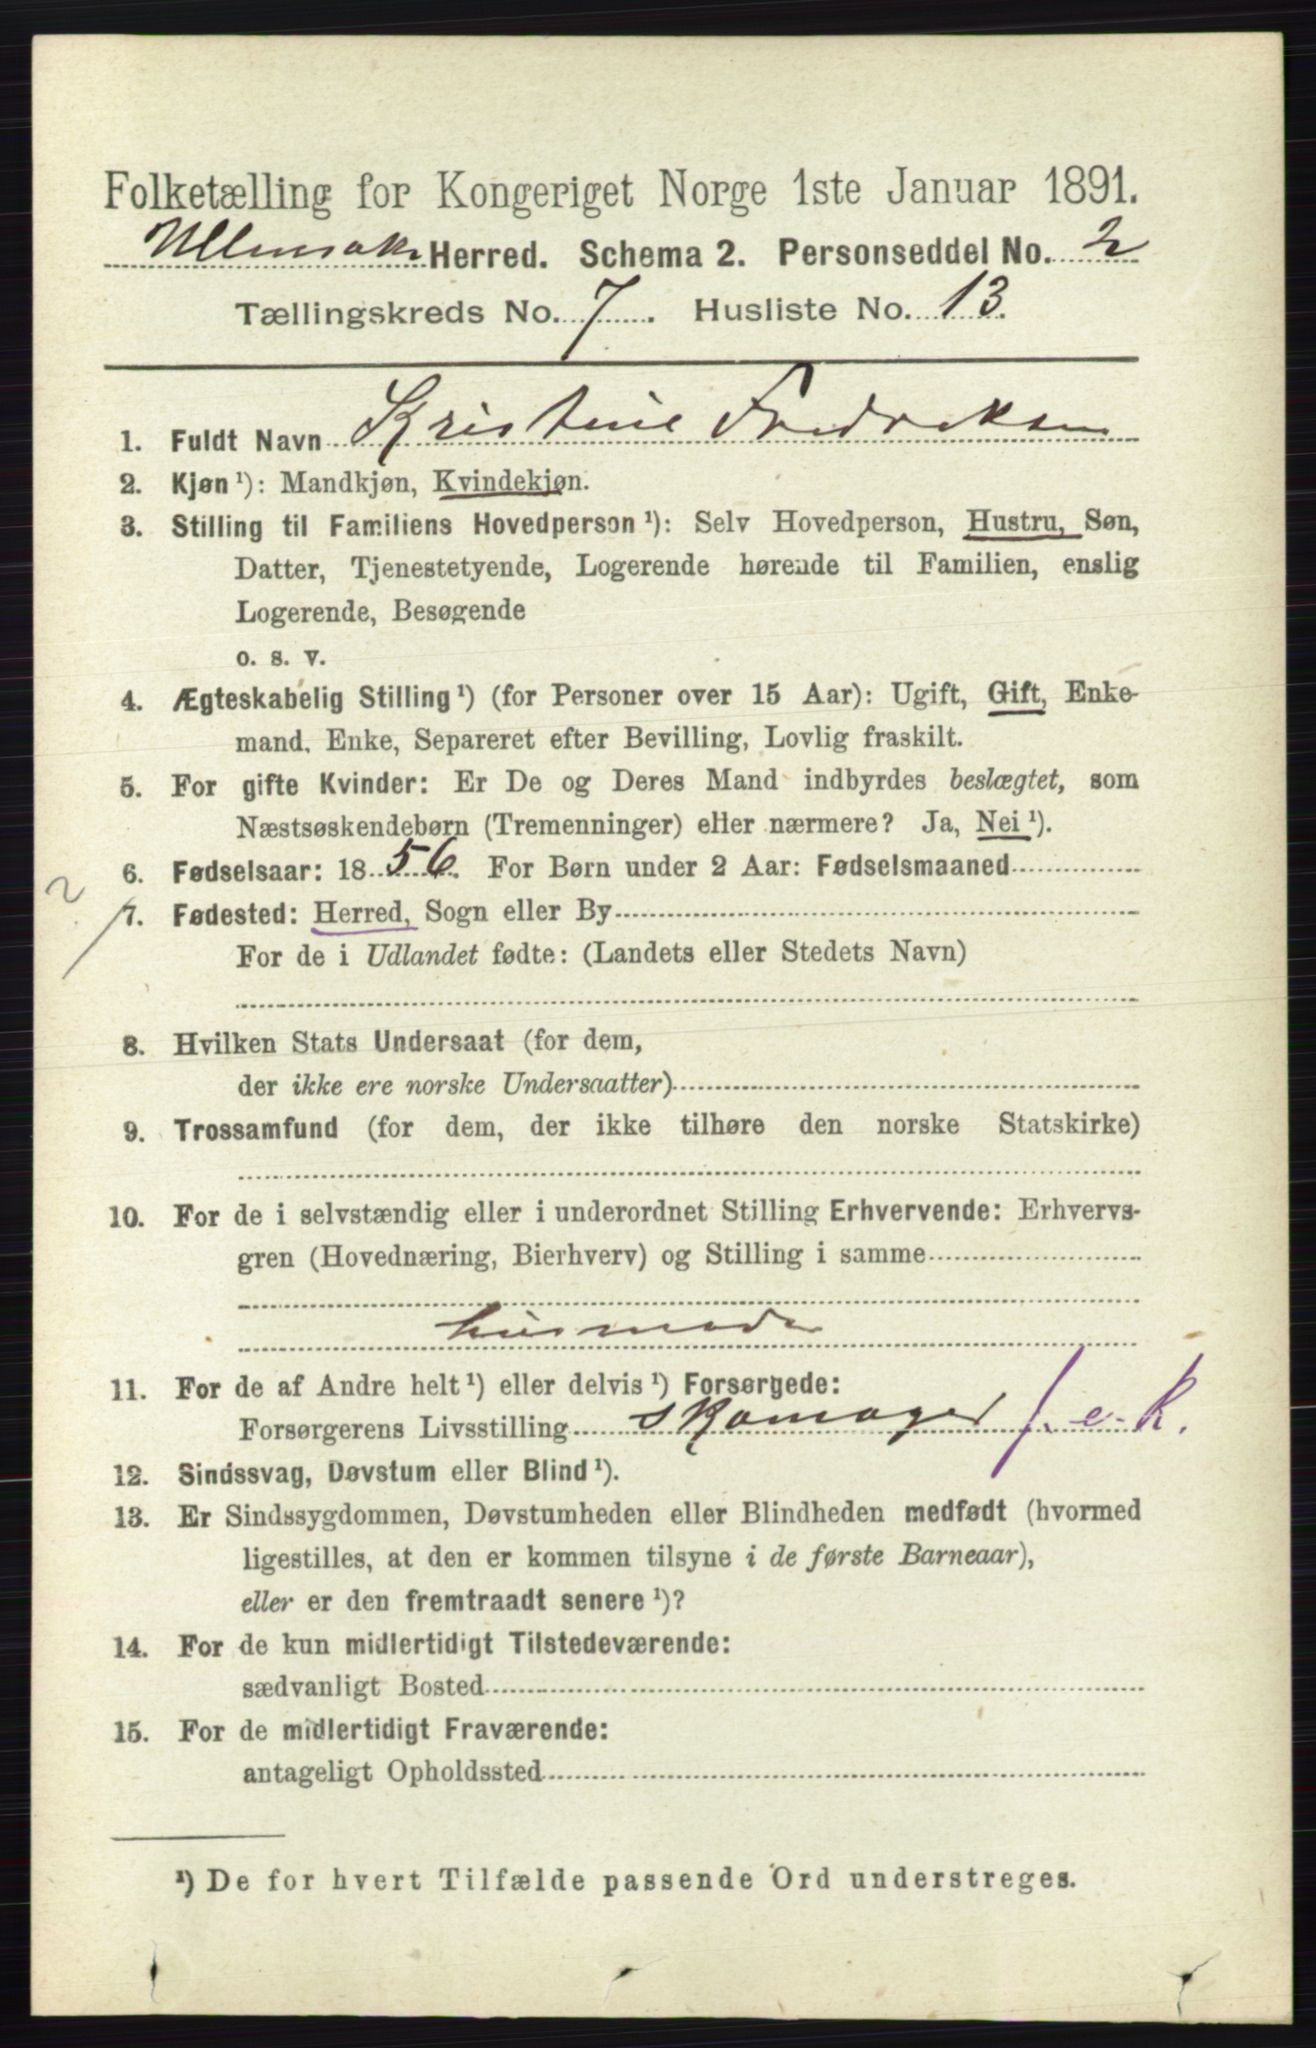 Folketælling for Kongeriget Norge 1ste Januar 1891.
Ullensaker Herred. Schema 2. Personseddel No. 2
Tællingskreds No. 7. Husliste No. 13.
1. Fuldt Navn Kristine Fredriksen
2. Kjøn ¹): Mandkjøn, Kvindekjøn.
3. Stilling til Familiens Hovedperson ¹): Selv Hovedperson, Hustru, Søn,
Datter, Tjenestetyende, Logerende hørende til Familien, enslig
Logerende, Besøgende
o. s. v.
4. Ægteskabelig Stilling ¹) (for Personer over 15 Aar): Ugift, Gift, Enke-
mand, Enke, Separeret efter Bevilling, Lovlig fraskilt.
5. For gifte Kvinder: Er De og Deres Mand indbyrdes beslægtet, som
Næstsøskendebørn (Tremenninger) eller nærmere? Ja, Nei ¹).
6. Fødselsaar: 1856. For Børn under 2 Aar: Fødselsmaaned
2
7. Fødested: Herred, Sogn eller By
For de i Udlandet fødte: (Landets eller Stedets Navn)
8. Hvilken Stats Undersaat (for dem,
der ikke ere norske Undersaatter)
9. Trossamfund (for dem, der ikke tilhøre den norske Statskirke)
10. For de i selvstændig eller i underordnet Stilling Erhvervende: Erhvervs-
gren (Hovednæring, Bierhverv) og Stilling i samme
husmoder
11. For de af Andre helt ¹) eller delvis ¹) Forsørgede:
Forsørgerens Livsstilling skomager f. e. k.
12. Sindssvag, Døvstum eller Blind ¹).
13. Er Sindssygdommen, Døvstumheden eller Blindheden medfødt (hvormed
ligestilles, at den er kommen tilsyne i de første Barneaar),
eller er den fremtraadt senere ¹)?
14. For de kun midlertidigt Tilstedeværende:
sædvanligt Bosted
15. For de midlertidigt Fraværende:
antageligt Opholdssted
¹) De for hvert Tilfælde passende Ord understreges.